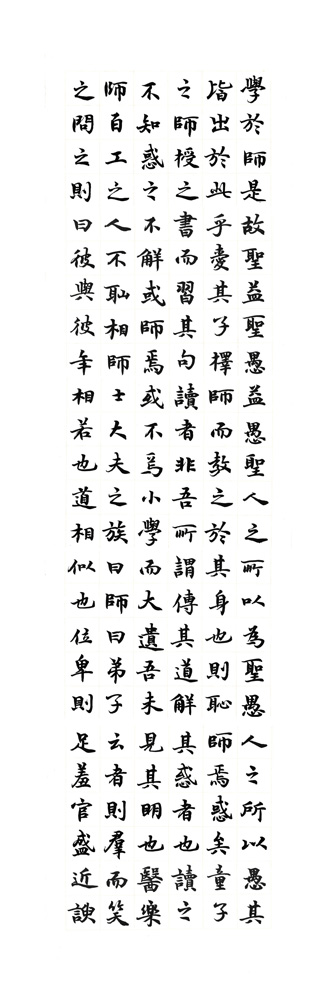 學於師是故聖益聖愚益愚聖人之所以為聖愚人之所以愚其
皆出於此乎愛其子擇師而教之於其身也則恥師焉惑矣童子
之師授之書而習其句讀者非吾所謂傳其道解其惑者也讀之
不知惑之不解或師焉或不焉小學而大遺吾未見其明也醫樂
師百工之人不耻相師士大夫之族曰師曰弟子云者則羣而笑
之問之則曰彼與彼年相若也道相似也位卑則足羞官盛近諛